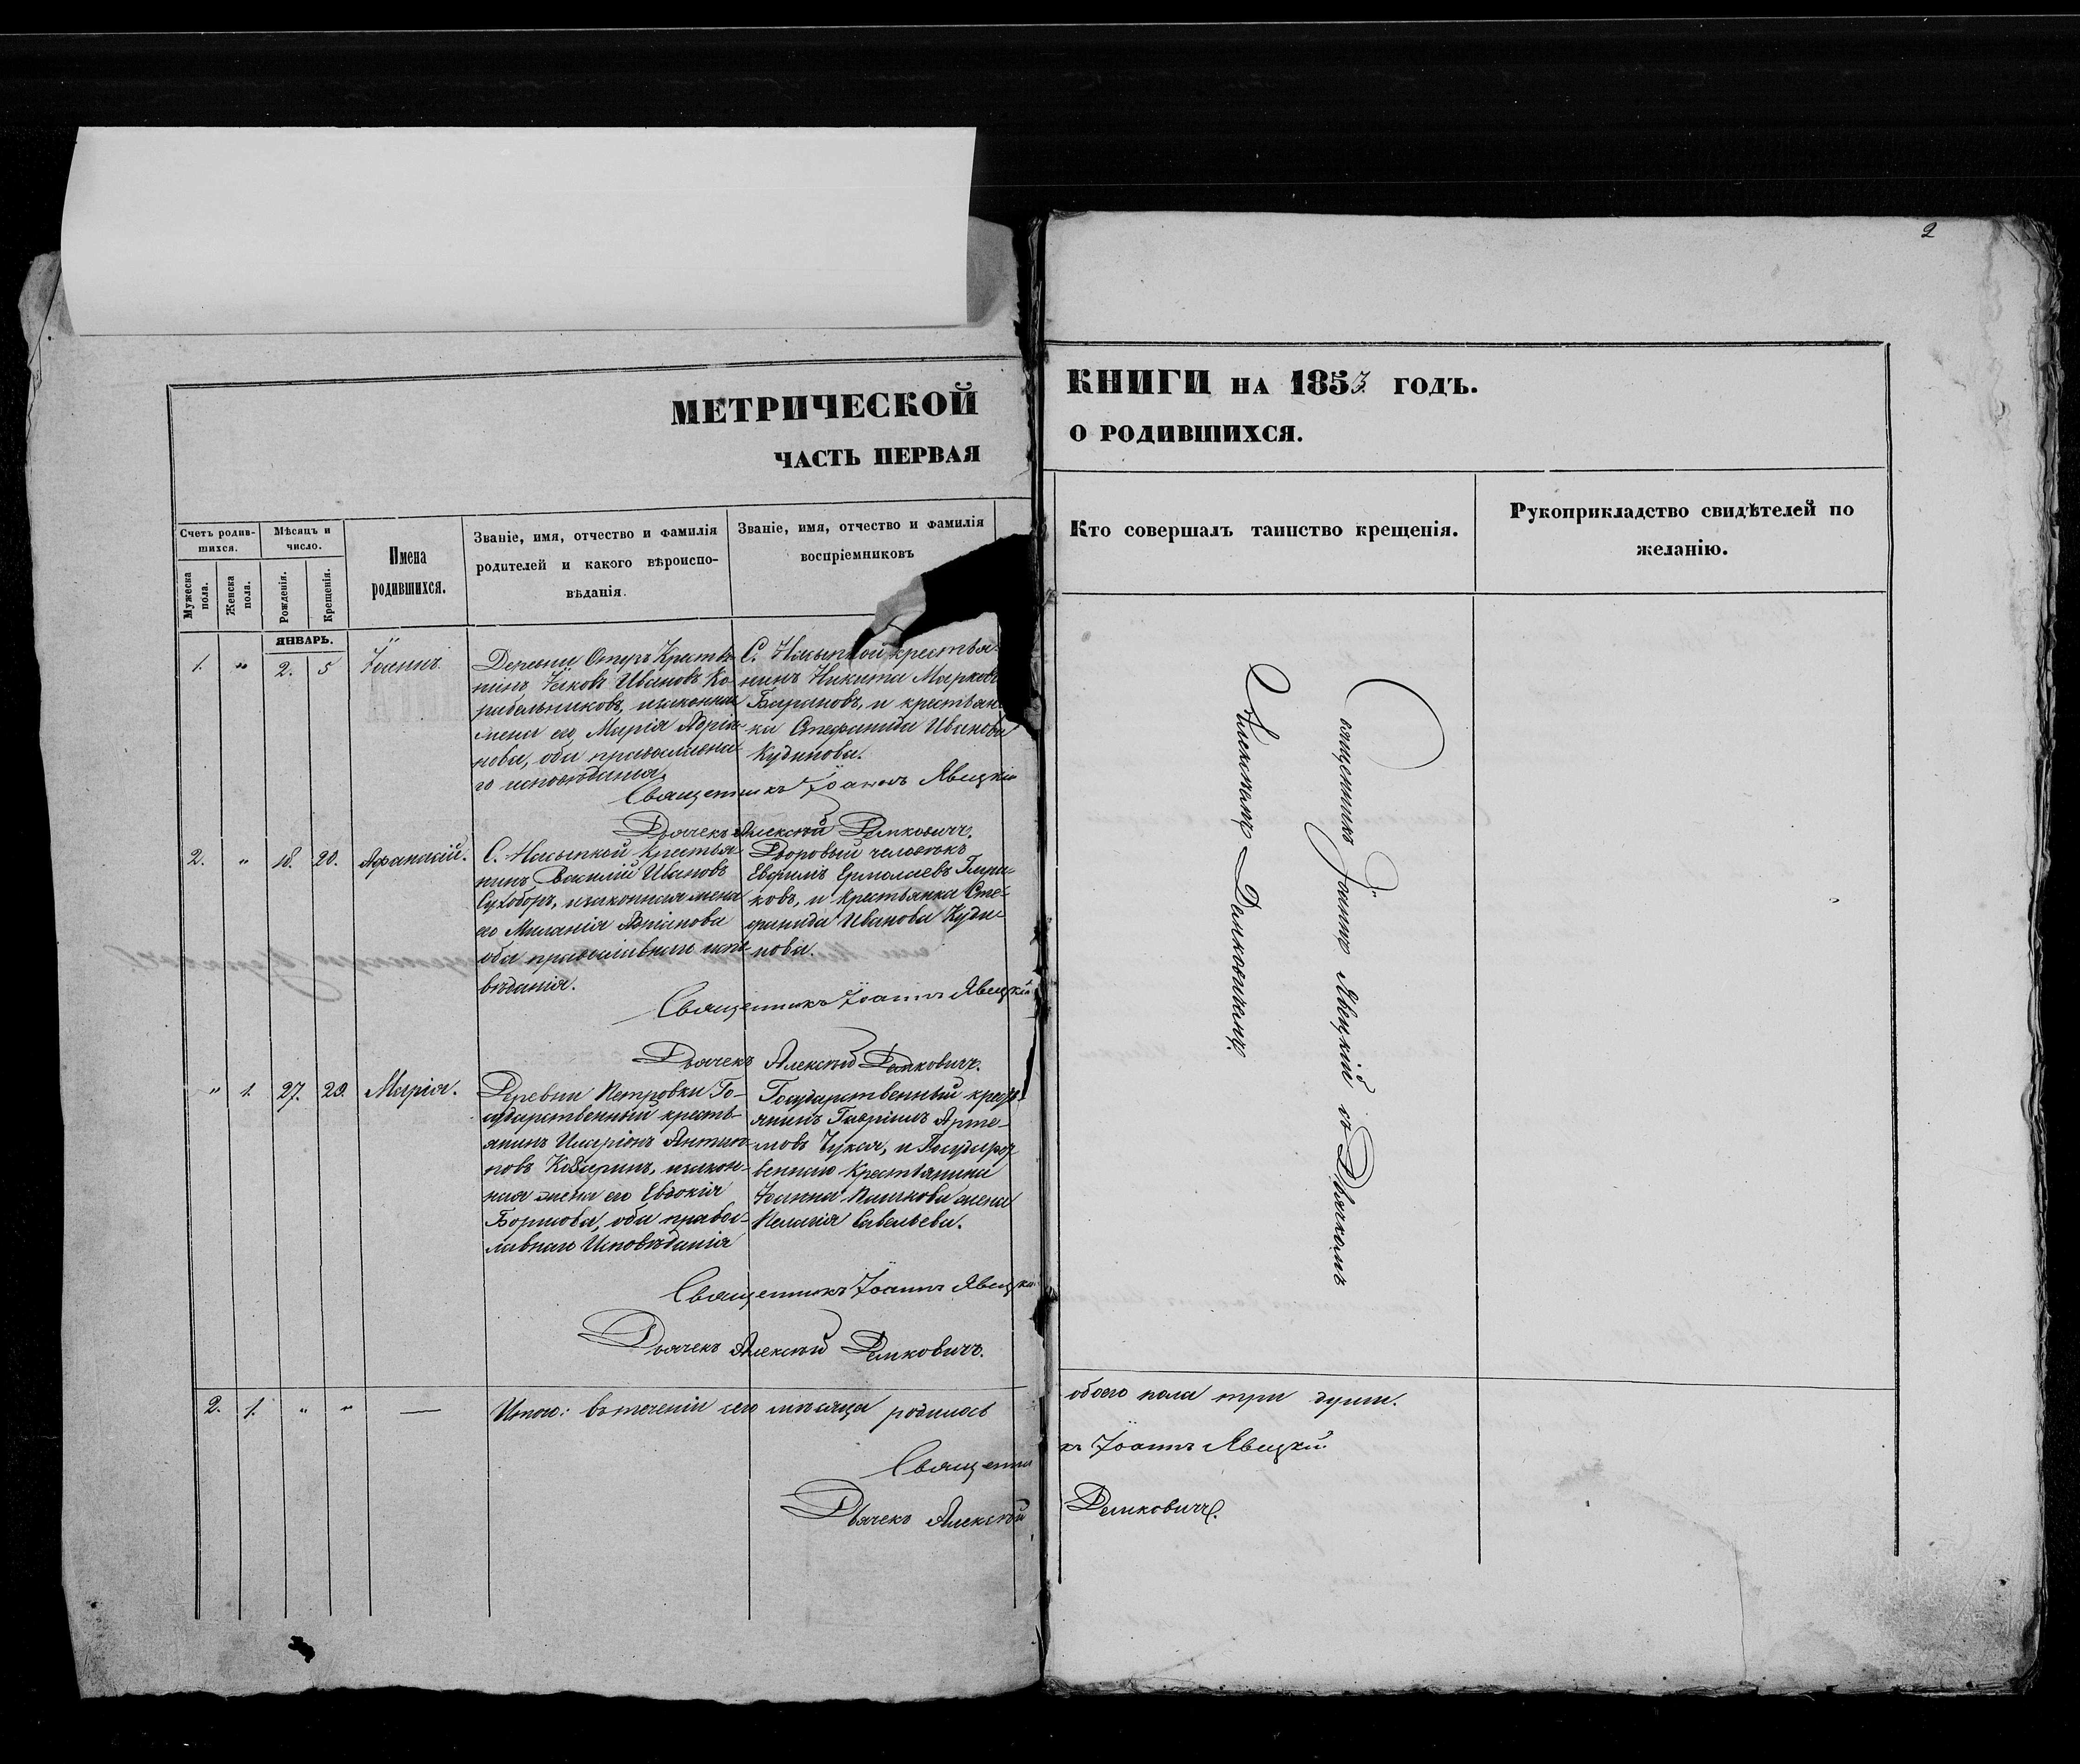 2
МЕТРИЧЕСКОЙ
КНИГИ НА 1853 ГОДЪ.
ЧАСТЬ ПЕРВАЯ
О РОДИВШИХСЯ.
Счетъ родив-
шихся.
Мужеска пола.
Женска пола.
Мѣсяцъ и
число.
Рожденія.
Крещенія.
Имена
родившихся.
Званіе, имя, отчество и фамилія
родителей и какого вѣроиспо-
вѣданія.
Званіе, имя, отчество и фамилія
воспріемниковъ
Кто совершалъ таинство крещенія.
Рукоприкладство свидѣтелей по
желанію.
ЯНВАРЬ.
1. " 2. 5 Іоаннъ.
Деревни Крестья
нинъ Іаковъ Ивановъ Ко
рабельниковъ, изаконная
жена его Марія Адріа
нова, оба православна
го исповѣданія.
С. Насыпной крестья-
нинъ Никита Марковъ
Барановъ, и крестьян
ка Стефанида Иванова
Кудинова.
Священникъ Іоаннъ Явецкій
Дьячекъ Алексѣй Демковичъ.
2. " 18. 20. Афанасій.
С. Насыпной Крестья
нинъ, Василий Ивановъ
Сухоборъ, изаконная жена
его Миланія Адріанова
оба православнаго испо
вѣданія.
Дворовый человѣкъ
Евфимъ Ермолаевъ
ковъ, и Крестьянка Сте-
фанида Иванова Куди
нова.
Священникъ Іоаннъ Явецкій
Дьячекъ Алексѣй Демковичъ.
" 1. 27. 29. Марія.
Деревни Петровки Го-
сударственный кресть-
янинъ Иларіонъ Антип
повъ изакон-
ная жена его Евдокія
Борисова, оба правос-
лавнаго Исповѣданія
Государственный крест
янинъ Гавріилъ Арте-
мовъ Чукая, и Государст
веннаго Крестьянина
Іоанна Пашкова жена
Пелагія Савельева.
Священникъ Іоаннъ Явецкій
Дьячекъ Алексѣй Демковичъ.
Священникъ Іоаннъ Явецкій съ Дьячкомъ
Алексѣемъ Демковичемъ.
2. 1. " " — Итого: въ теченіи сего мѣсяца родилось обоего пола три души.
Священникъ Іоаннъ Явецкій.
Дьячекъ Алексѣй Демковичъ.